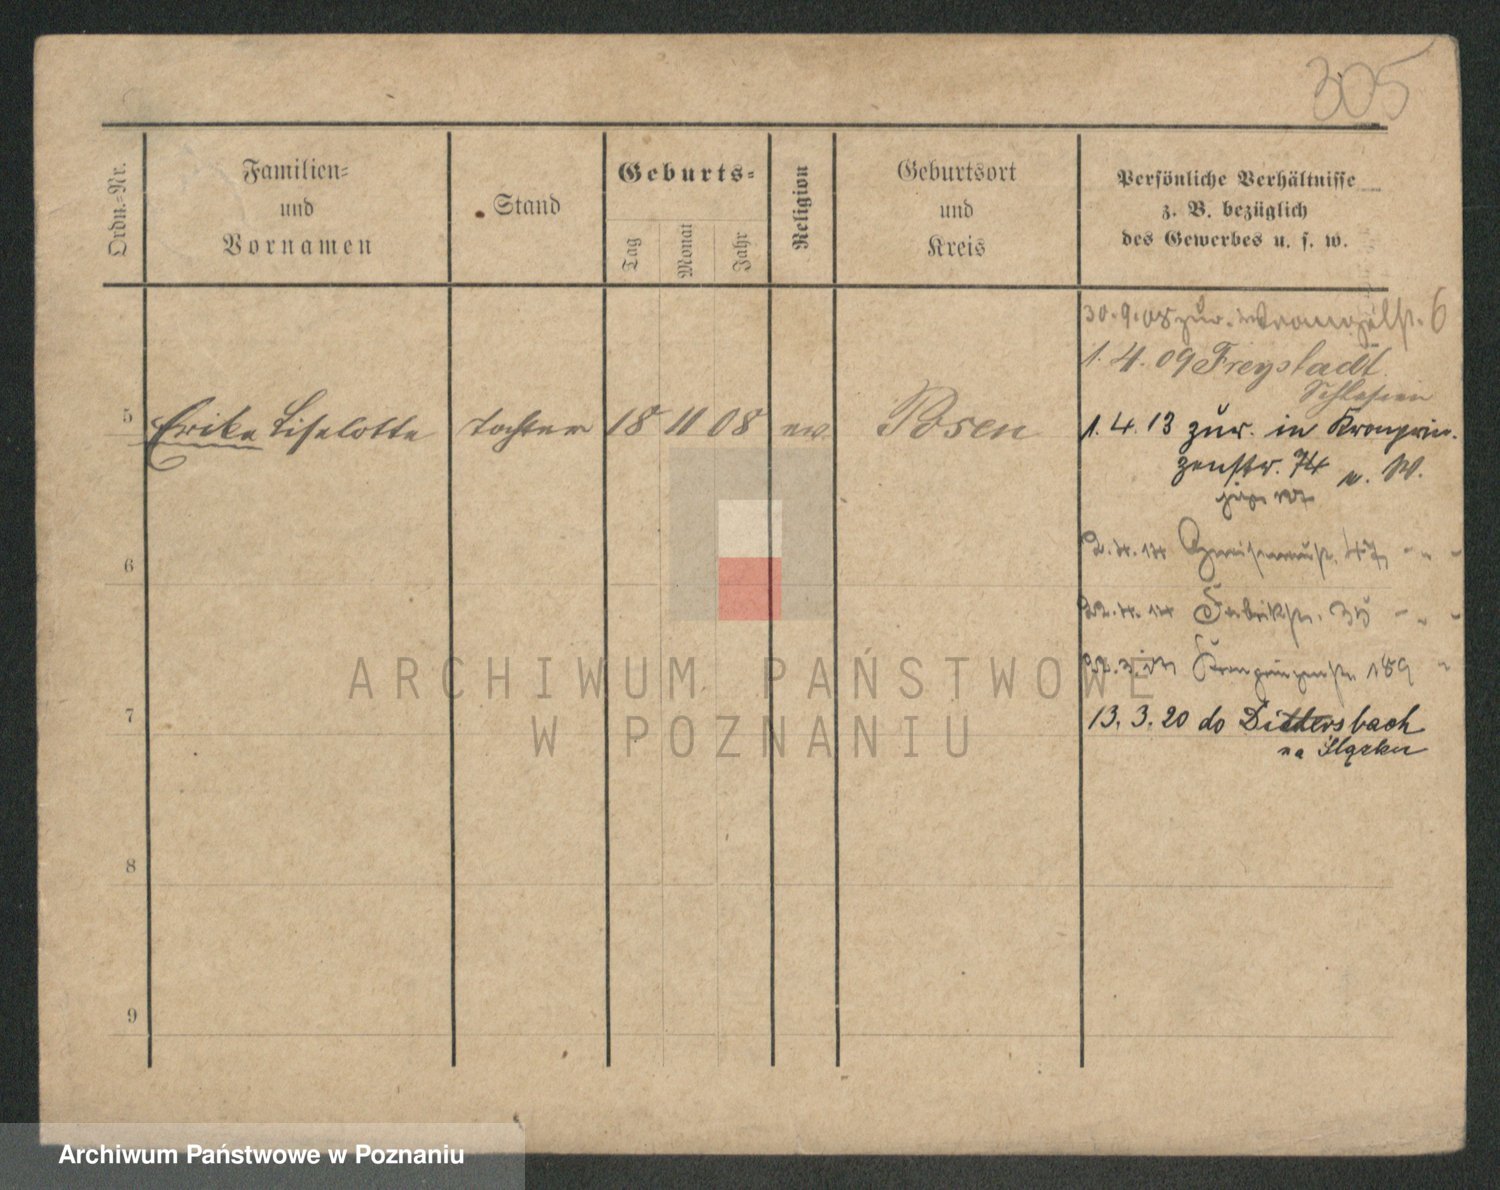 305
Ordn.-Nr.
Familien-
und
Vornamen
Stand
Geburts-
Tag
Monat
Jahr
Religion
Geburtsort
und
Kreis
Persönliche Verhältnisse
z. B. bezüglich
des Gewerbes u. s. w.
30.9.08 zur. 6
1.4.09 Freystadt
Schlesien
5 Erika Liselotte Tochter 18 11 08 ev. Posen
1.4.13 zur. in Kronprin-
zenstr. 74 u. W.
6
Gneisenaustr. 47
Fabrikstr. 35
Kronprinzenstr. 189
7
13.3.20 do Dittersbach
na Śląsku
8
9
ARCHIWUM PAŃSTWOWE
W POZNANIU
Archiwum Państwowe w Poznaniu